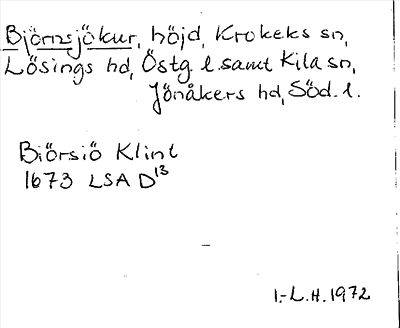 Björnsjökur, höjd, Krokeks sn,
Lösings hd, Östg l. samt Kila sn,
Jönåkers hd, Söd. l.
Biörsiö Klint
1673 LSA D13
1.-L.H. 1972